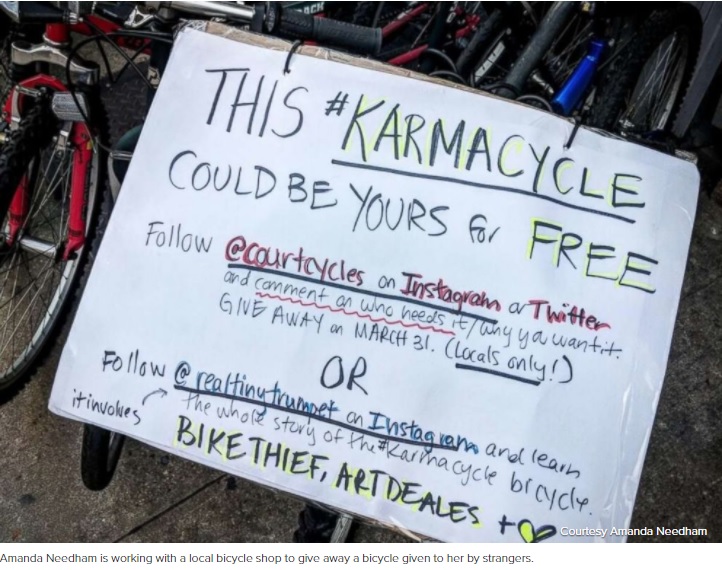 THIS #KARMACYCLE
COULD BE YOURS for FREE
Follow @courtcycles on Instagram or Twitter
and comment on who needs it/why you want it.
GIVE AWAY on MARCH 31. (Locals only!)
OR
Follow @realtinytrumpet on Instagram and learn
it involves the whole story of the #Karmacycle bicycle.
BIKE THIEF, ART DEALES + 
Courtesy Amanda Needham
Amanda Needham is working with a local bicycle shop to give away a bicycle given to her by strangers.